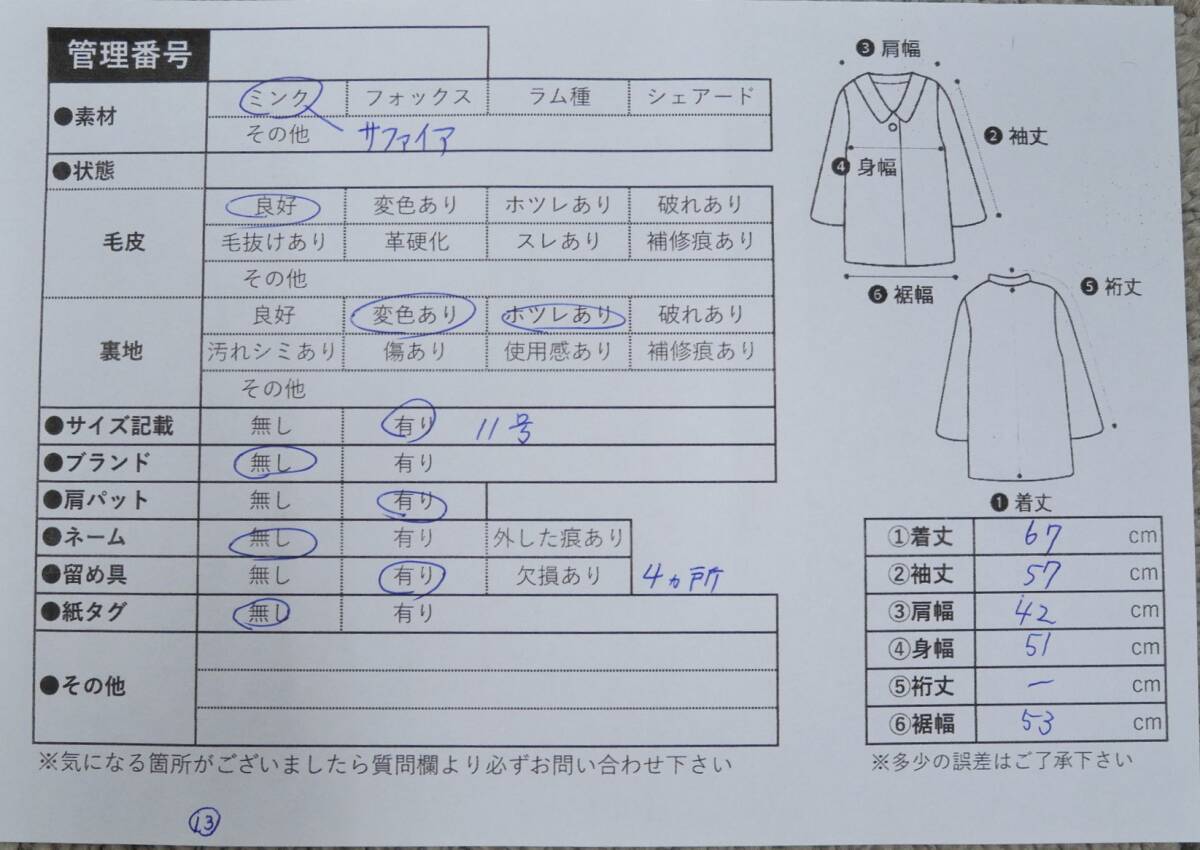 管理番号
●素材 ミンク フォックス ラム種 シェアード
その他 サファイア
●状態
毛皮 良好 変色あり ホツレあり 破れあり
毛抜けあり 革硬化 スレあり 補修痕あり
その他
裏地 良好 変色あり ホツレあり 破れあり
汚れシミあり 傷あり 使用感あり 補修痕あり
その他
●サイズ記載 無し 有り 11号
●ブランド 無し 有り
●肩パット 無し 有り
●ネーム 無し 有り 外した痕あり
●留め具 無し 有り 欠損あり 4ヵ所
●紙タグ 無し 有り
●その他
※気になる箇所がございましたら質問欄より必ずお問い合わせ下さい
⑬
❸肩幅
❷袖丈
❹身幅
❻裾幅
❺裄丈
❶着丈
①着丈 67 cm
②袖丈 57 cm
③肩幅 42 cm
④身幅 51 cm
⑤裄丈 ー cm
⑥裾幅 53 cm
※多少の誤差はご了承下さい